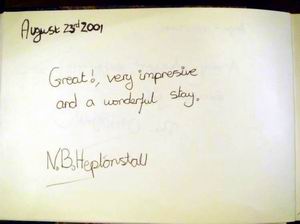 August 23rd 2001
Great!, very impresive
and a wonderful stay.
N.B.Heptonstall